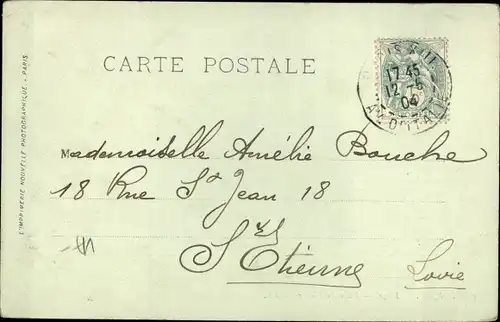 CARTE POSTALE
17 45
12 -5
04
Mademoiselle Amélie Bouche
18 Rue St Jean 18
St Etienne
Loire
L'IMPRIMERIE NOUVELLE PHOTOGRAPHIQUE - PARIS